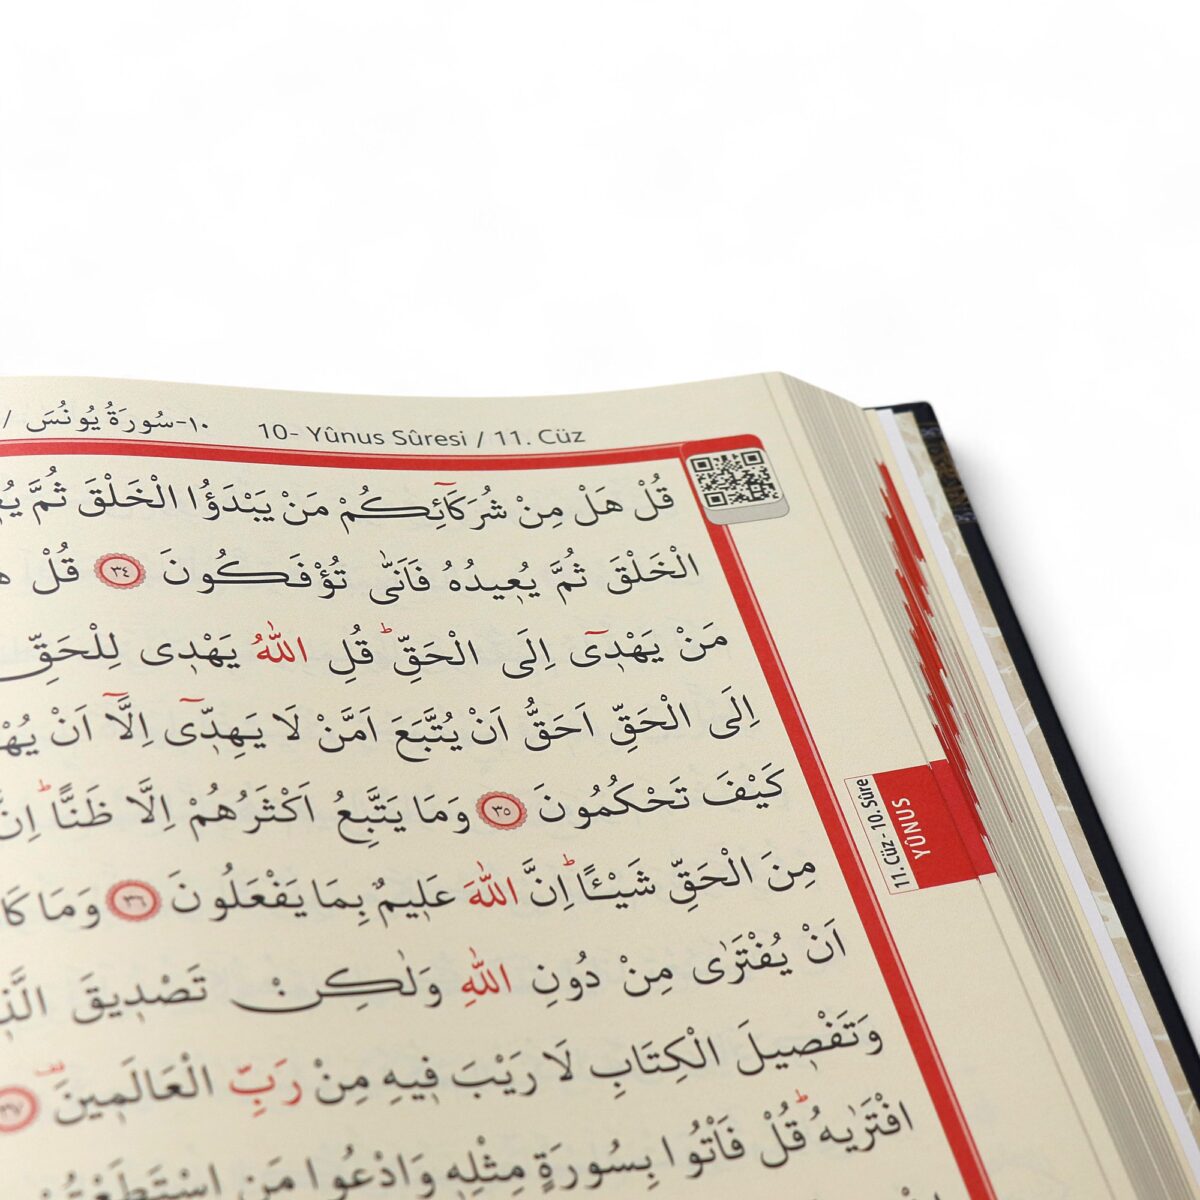 ١٠-سُورَةُ يُونُسَ /
10- Yûnus Sûresi / 11. Cüz
قُلْ هَلْ مِنْ شُرَكَٓائِكُمْ مَنْ يَبْدَؤُا الْخَلْقَ ثُمَّ
الْخَلْقَ ثُمَّ يُع۪يدُهُ فَاَنّٰى تُؤْفَكُونَ ﴿٣٤﴾ قُلْ
مَنْ يَهْد۪ٓى اِلَى الْحَقِّۜ قُلِ اللّٰهُ يَهْد۪ى لِلْحَقِّ
اِلَى الْحَقِّ اَحَقُّ اَنْ يُتَّبَعَ اَمَّنْ لَا يَهِدّ۪ٓى اِلَّٓا اَنْ
كَيْفَ تَحْكُمُونَ ﴿٣٥﴾ وَمَا يَتَّبِعُ اَكْثَرُهُمْ اِلَّا ظَنًّاۜ اِنَّ
مِنَ الْحَقِّ شَيْـًٔاۜ اِنَّ اللّٰهَ عَل۪يمٌ بِمَا يَفْعَلُونَ ﴿٣٦﴾ وَمَا
اَنْ يُفْتَرٰى مِنْ دُونِ اللّٰهِ وَلٰكِنْ تَصْد۪يقَ
وَتَفْص۪يلَ الْكِتَابِ لَا رَيْبَ ف۪يهِ مِنْ رَبِّ الْعَالَم۪ينَ ﴿٣٧﴾
افْتَرٰيهُۜ قُلْ فَأْتُوا بِسُورَةٍ مِثْلِه۪ وَادْعُوا مَنِ اسْتَطَعْتُمْ
11. Cüz - 10. Sûre
YÛNUS